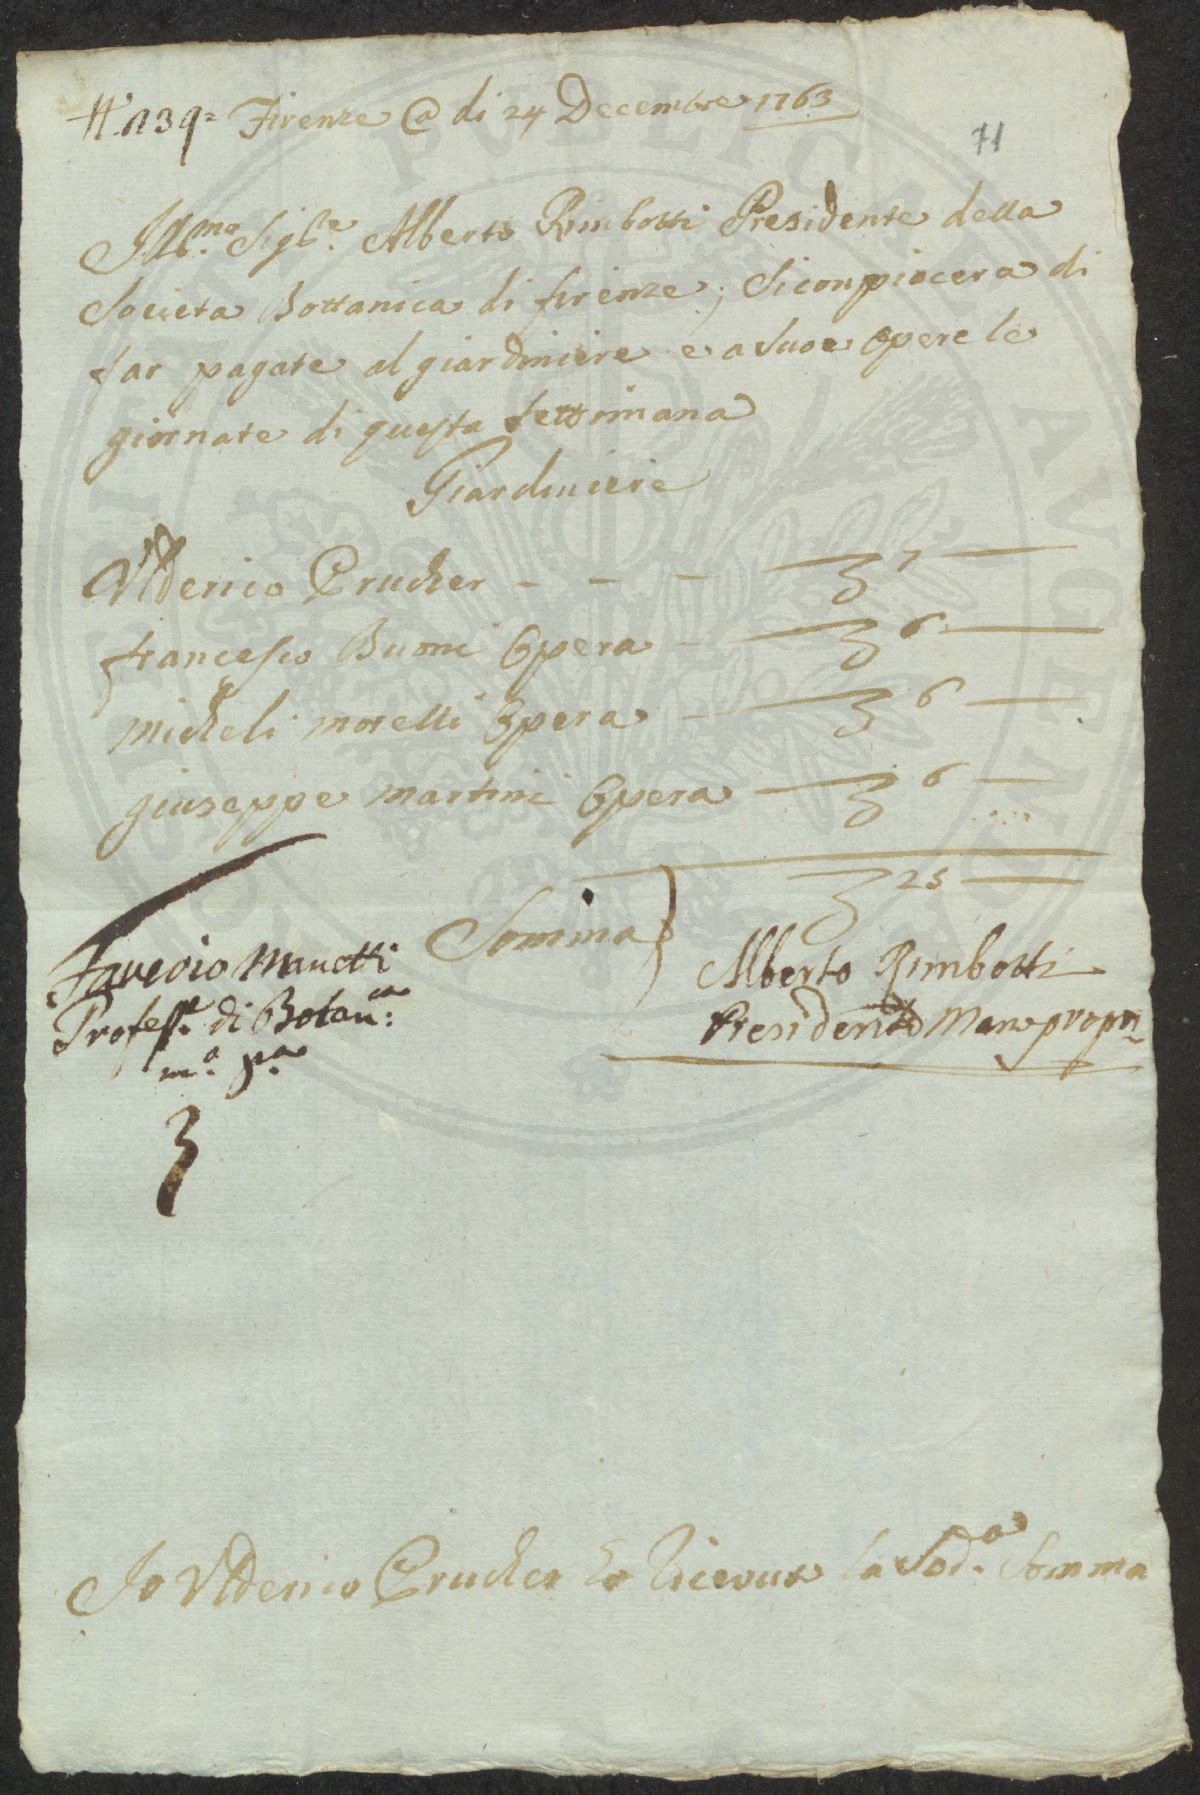 N. 139= Firenze @ di 24 Decembre 1763
71
Ill.mo Sig.re Alberto Rimbotti Presidente della
Societa Bottanica di firenze; Si conpiacera di
far pagare al giardiniere e a Suoe Opere le
giornate di questa settimana
Giardiniere
Vlderico Prucher - - - 7 —
francesco Bumi Opera - 6 —
micheli morelli Opera - 6 —
giuseppe martini Opera — 6 —
Somma 25 —
Saverio Manetti
Profess.re di Botan.ca
m.o p.a
Alberto Rimbotti
Presidente Mano propri
Io Vlderico Prucher ho Riceuuto la Sod.a Somma